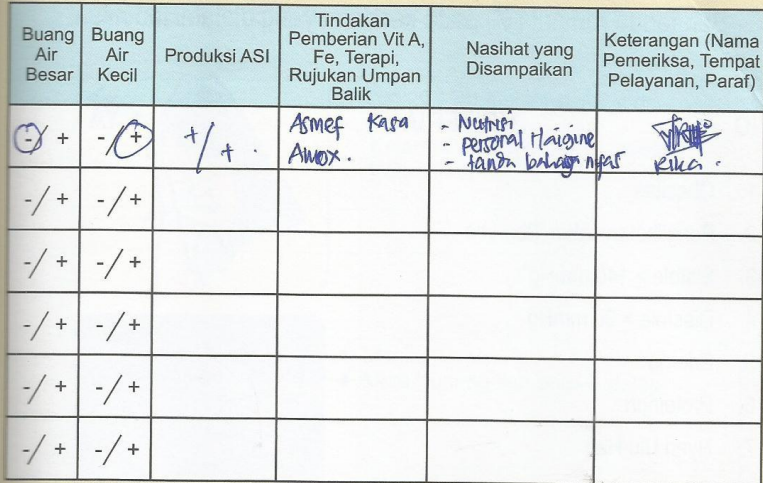 Buang Air Besar
Buang Air Kecil
Produksi ASI
Tindakan Pemberian Vit A, Fe, Terapi, Rujukan Umpan Balik
Nasihat yang Disampaikan
Keterangan (Nama Pemeriksa, Tempat Pelayanan, Paraf)
-/ + -/ + +/+ . Asmef Kasa - Nutrisi
Amox. - personal Haigine
- tanda bahaya nifas Rika.
-/ + -/ +
-/ + -/ +
-/ + -/ +
-/ + -/ +
-/ + -/ +